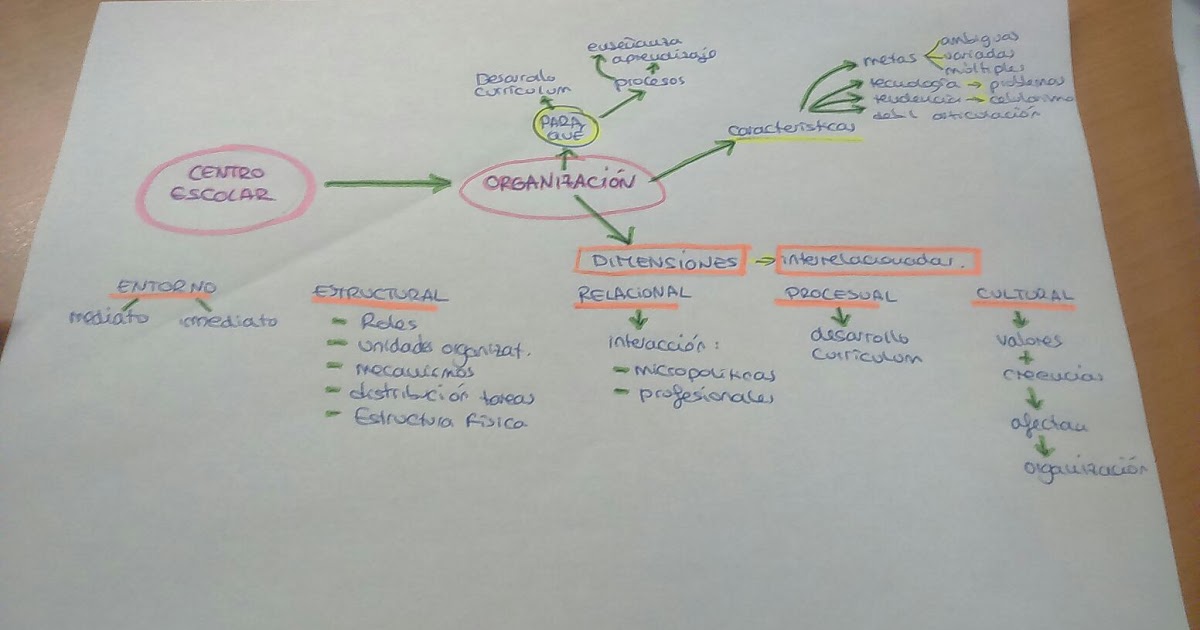 CENTRO
ESCOLAR
ORGANIZACIÓN
PARA
QUÉ
Desarrollo
curriculum
procesos
enseñanza
aprendizaje
características
metas
ambiguas
variadas
múltiples
tecnología → problemas
tendencia → celularismo
débil articulación
DIMENSIONES → interrelacionadas.
ENTORNO
mediato inmediato
ESTRUCTURAL
- Roles
- unidades organizat.
- mecanismos
- distribución tareas
- Estructura física
RELACIONAL
interacción:
- micropolíticas
- profesionales
PROCESUAL
desarrollo
curriculum
CULTURAL
valores
+
creencias
afectan
organización